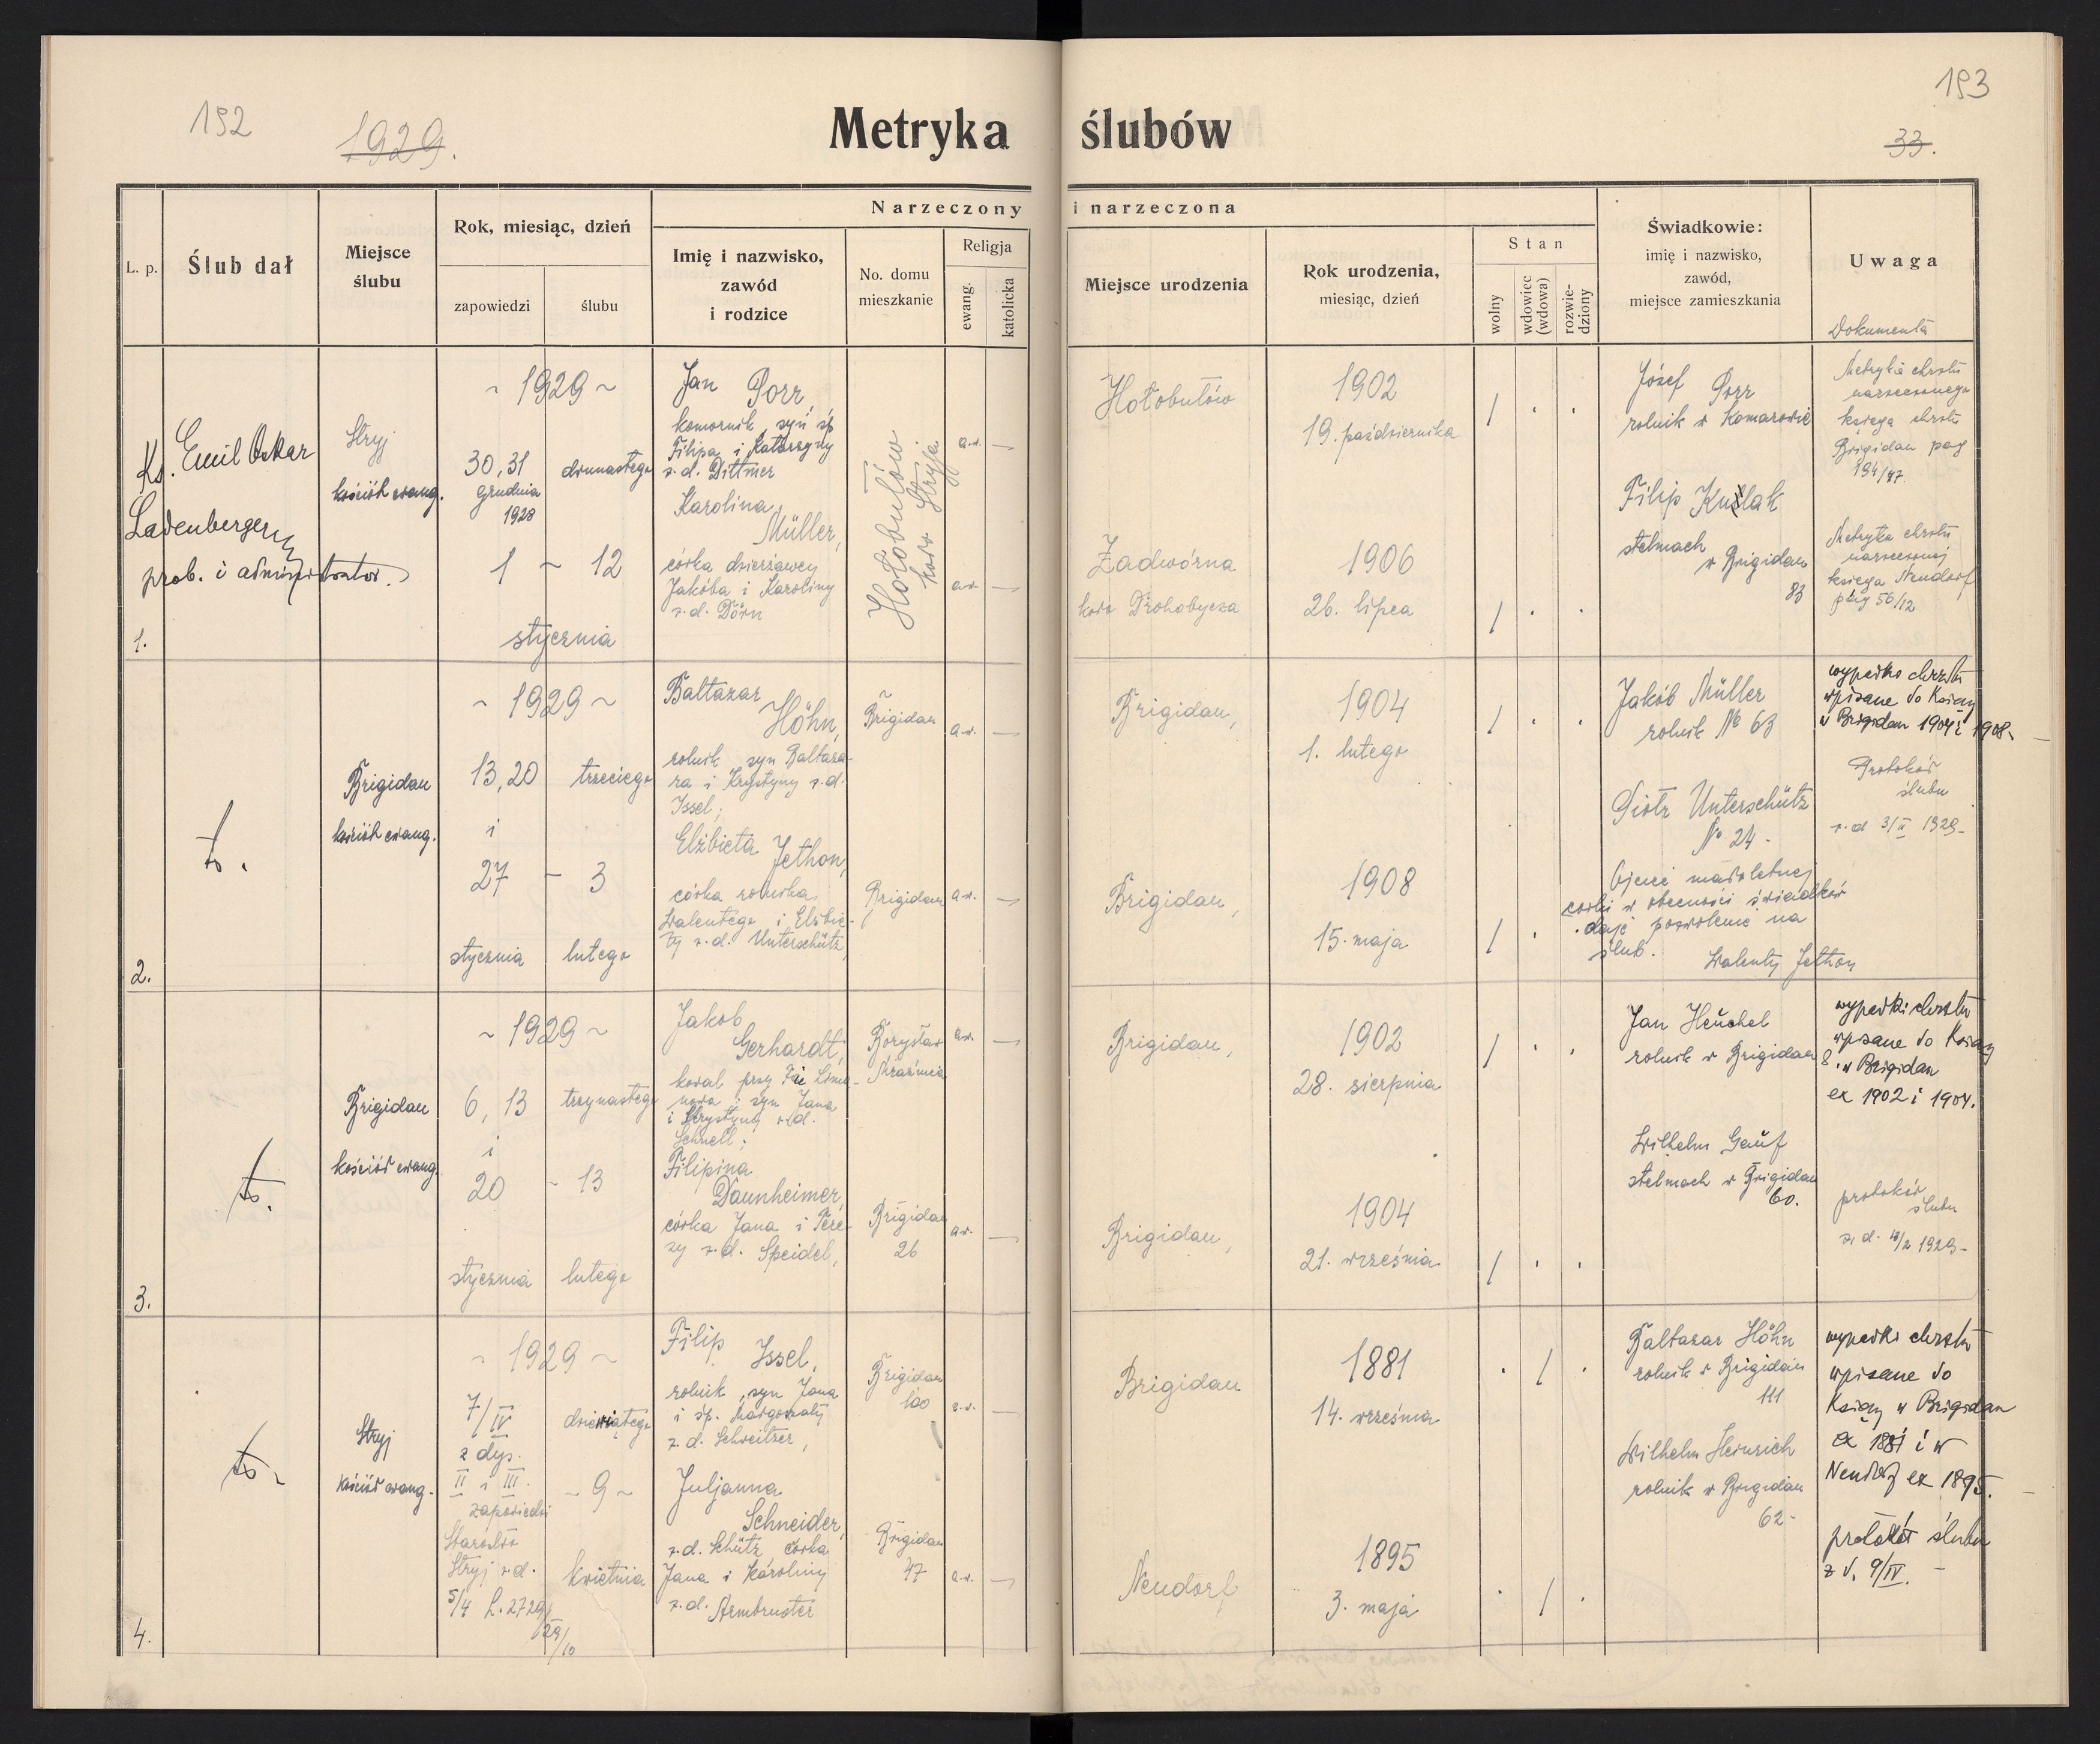 192
193
1929.
33.
Metryka ślubów
L. p.
Ślub dał
Miejsce
ślubu
Rok, miesiąc, dzień
zapowiedzi
ślubu
Narzeczony i narzeczona
Imię i nazwisko,
zawód
i rodzice
No. domu
mieszkanie
Religja
ewang.
katolicka
Miejsce urodzenia
Rok urodzenia,
miesiąc, dzień
Stan
wolny
wdowiec
(wdowa)
rozwie-
dziony
Świadkowie:
imię i nazwisko,
zawód,
miejsce zamieszkania
Uwaga
Dokumenta
1.
Ks. Emil Oskar
Ladenberger
prob. i administrator.
Stryj
kościół ewang.
~ 1929 ~
30, 31
grudnia
1928
1
dwunastego
~ 12
stycznia
Jan Porr,
komornik, syn śp
Filipa i Katarzyny
z. d. Dittmer
Karolina
Müller,
córka dzierżawcy
Jakóba i Karoliny
z. d. Dörn
Hołobutów
koło Stryja
a.w. —
a.w. —
Hołobutów
1902
19. października
/ . .
Zadwórna
koło Drohobycza
1906
26. lipca
/ . .
Józef Porr
rolnik w Komarowie
Filip Kullak
stelmach
w Brigidau
83
Metryka chrztu
narzeczonego
księga chrztu
Brigidau pag
194/87.
Metryka chrztu
narzeczonej
księga Neudorf
pag 56/12
2.
to.
Brigidau
kościół ewang.
~ 1929 ~
13, 20
i
27
stycznia
trzeciego
- 3
lutego
Baltazar
Höhn,
rolnik syn Baltaza-
ra i Krystyny z. d.
Issel;
Elżbieta Jethon,
córka rolnika
Walentego i Elżbie-
ty z. d. Unterschütz
Brigidau
a.w. —
Brigidau
a.w. —
Brigidau,
1904
1. lutego
/ . .
Brigidau,
1908
15. maja
/ .
Jakób Müller
rolnik No 63
Piotr Unterschütz
No 24 -
Ojciec małoletniej
córki w obecności świadków
daje pozwolenie na
ślub.
Walenty Jethon
wpisane do Księgi
w Brigidau 1904 i 1908.
Protokół
ślubu
z. d 3/II 1929-
3.
to.
Brigidau
kościół ewang.
~ 1929 ~
6, 13
i
20
stycznia
trzynastego
- 13
lutego
Jakob
Gerhardt,
kowal przy
syn Jana
i Krystyny z. d.
Schnell;
Filipina
Daunheimer,
córka Jana i Tere-
zy z. d. Speidel,
Borysław
Mraźnica
a.w. —
Brigidau
26
a.w. —
Brigidau,
1902
28. sierpnia
/ . .
Brigidau,
1904
21. września
/ . .
Jan Heuchel
rolnik w Brigidau 8.
Wilhelm Gauf
stelmach w Brigidau
60.
wpisane do Księgi
w Brigidau
ex 1902 i 1904.
protokół
ślubu
z. d. 13/2 1929-
4.
to -
Stryj
kościół ewang.
~ 1929 ~
7/IV
z dys.
II i III.
zapowiedzi
Starostwo
Stryj z. d.
5/4 L. 2729/
dziewiątego
~ 9 ~
kwietnia
Filip
Issel,
rolnik, syn Jana
i śp. Małgorzaty
z. d. Schweitzer,
Juljanna
Schneider,
z. d. Schütz córka
Jana i Karoliny
z. d. Armbruster
Brigidau
100
a.w. —
Brigidau
47
a.w. —
Brigidau
1881
14. września
. / .
Neudorf
1895
3. maja
. / .
Baltazar Höhn
rolnik w Brigidau
111
Wilhelm Heinrich
rolnik w Brigidau
62-
wpisane do
Księgi w Brigidau
ex 1881 i w
Neudorf ex 1895.
protokół ślubu
z d. 9/IV. -